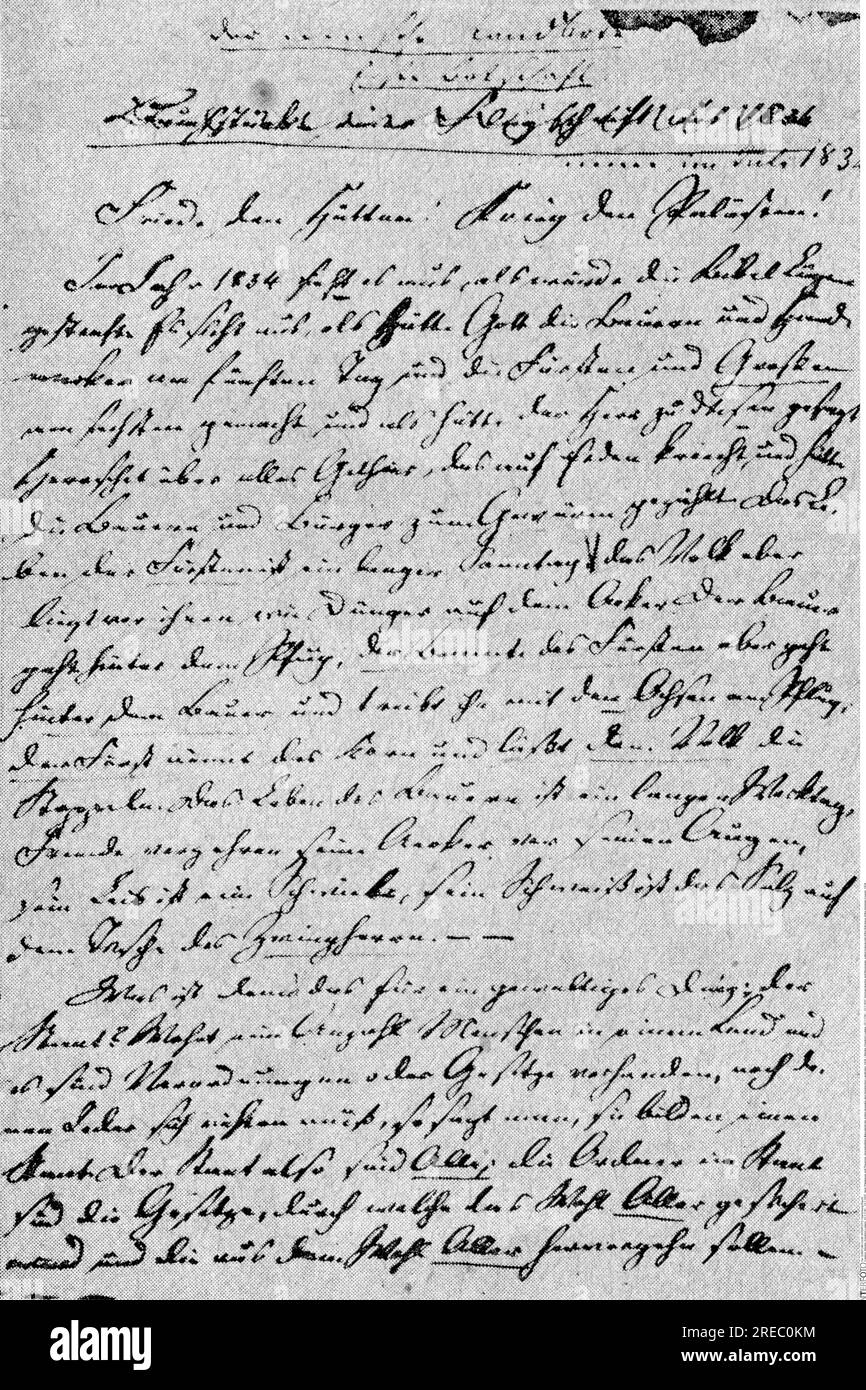 Landbote
Botschaft
Bruchstücke einer Flugschrift aus 1834
im Juli 183
Friede den Hütten! Krieg den Palästen!
Im Jahr 1834 sieht es aus, als würde die Bibel Lügen
gestraft. Es sieht aus, als hätte Gott die Bauern und Hand
werker am fünften Tag und die Fürsten und Großen
am sechsten gemacht und als hätte der Herr zu diesen gesagt
Herrschet über alles Gethier, das auf Erden kriecht und hätte
die Bauern und Bürger zum Gewürm gezählt. Das Le-
ben der Fürsten ist ein langer Sonntag, das Volk aber
liegt vor ihnen wie Dünger auf dem Acker. Der Bauer
geht hinter dem Pflug, der Beamte des Fürsten aber geht
hinter dem Bauer und treibt ihn mit den Ochsen am Pflug,
der Fürst nimmt das Korn und läßt dem Volk die
Stoppeln. Das Leben des Bauern ist ein langer Werktag,
Fremde verzehren seine Aecker vor seinen Augen,
sein Leib ist eine Schwiele, sein Schweiß ist das Salz auf
dem Tische des Zwingherrn. — —
Was ist denn das für ein gewaltiges Ding: der
Staat? Wohnt eine Anzahl Menschen in einem Land und
es sind Verordnungen oder Gesetze vorhanden, nach de-
nen Jeder sich richten muß, so sagt man, sie bilden einen
Staat. Der Staat also sind Alle; die Ordner im Staat
sind die Gesetze, durch welche das Wohl Aller gesichert
wird und die aus dem Wohl Aller hervorgehn sollen. —
alamy
Image ID: 2REC0KM
www.alamy.com